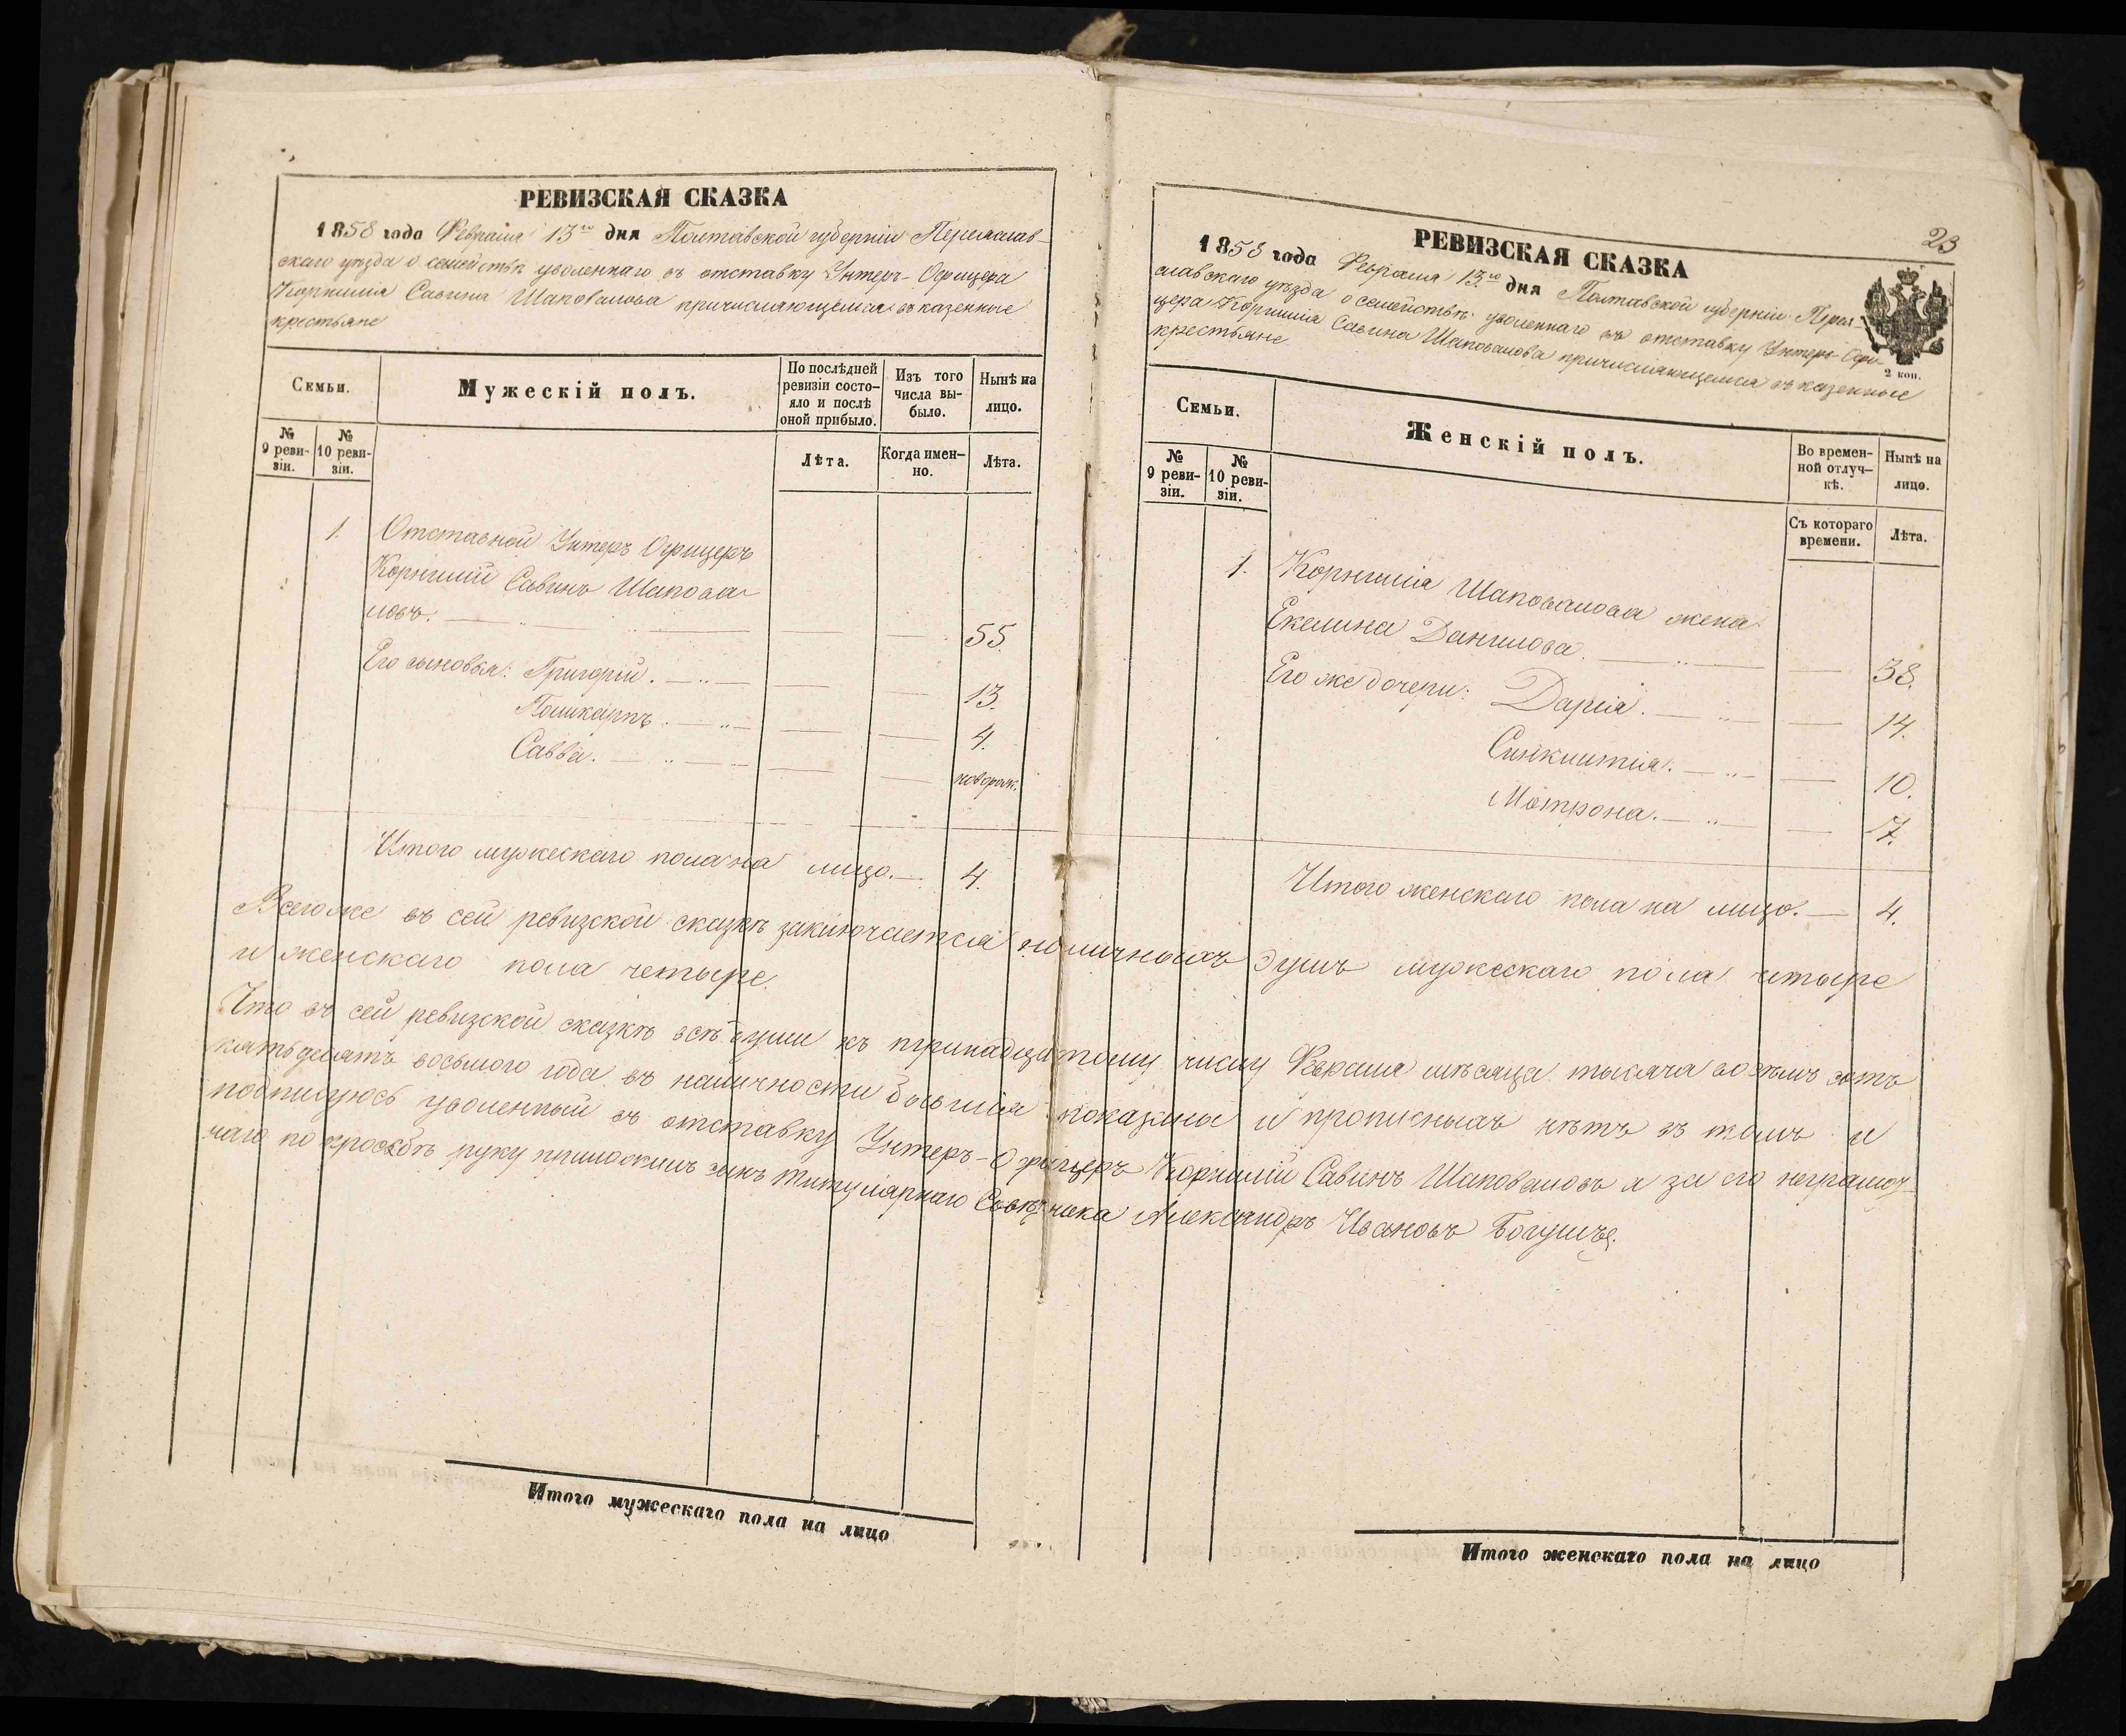 РЕВИЗСКАЯ СКАЗКА
1858 года Февраля 13го дня Полтавской губерніи Переяслав-
скаго уѣзда о семействѣ уволеннаго въ отставку Унтеръ-Офицера
Корнилія Савина Шаповалова причисляющемся въ казенные
крестьяне
Семьи.
Мужескій полъ.
По послѣдней
ревизіи состо-
яло и послѣ
оной прибыло.
Изъ того
числа вы-
было.
Нынѣ на
лицо.
№
9 реви-
зіи.
№
10 реви-
зіи.
Лѣта.
Когда имен-
но.
Лѣта.
1. Отставной Унтеръ Офицеръ
Корнилій Савинъ Шапова-
ловъ. 55.
Его сыновья: Григорій. 13.
Поликарпъ. 4.
Савва. новорож.
Итого мужескаго пола на лицо. 4.
23
РЕВИЗСКАЯ СКАЗКА
1858 года Февраля 13го дня Полтавской губерніи Перея-
славскаго уѣзда о семействѣ уволеннаго въ отставку Унтеръ-Офи-
цера Корнилія Савина Шаповалова причисляющемся въ казенные
крестьяне
2 коп.
Семьи.
Женскій полъ.
Во времен-
ной отлуч-
кѣ.
Нынѣ на
лицо.
№
9 реви-
зіи.
№
10 реви-
зіи.
Съ котораго
времени.
Лѣта.
1. Корнилія Шаповалова жена
Екелина Данилова. 38.
Его же дочери: Дарія. 14.
Синклитія. 10.
Мотрона. 7.
Итого женскаго пола на лицо. 4.
Всего же въ сей ревизской сказкѣ заключается наличныхъ душъ мужескаго пола четыре
и женскаго пола четыре.
Что въ сей ревизской сказкѣ всѣ души къ тринадцатому числу Февраля мѣсяца тысяча восемь сотъ
пятьдесятъ восьмого года въ наличности бывшія показаны и прописныхъ нѣтъ въ томъ и
подписуюсь уволенный въ отставку Унтеръ-Офицеръ Корнилій Савинъ Шаповаловъ а за его неграмот-
наго по просьбѣ руку приложилъ сынъ Титулярнаго Совѣтника Александръ Ивановъ Богушъ.
Итого мужескаго пола на лицо
Итого женскаго пола на лицо